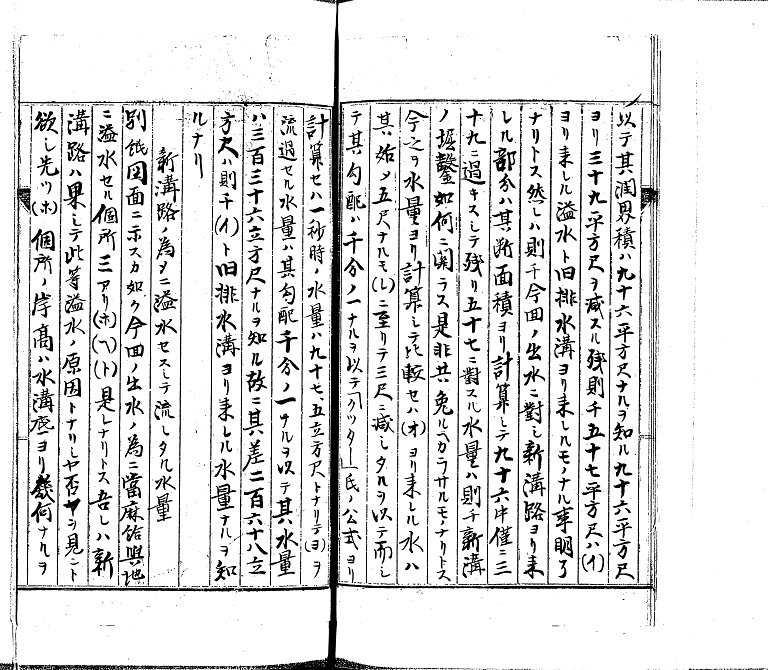 以テ其潤界積ハ九十六平方尺ナルヲ知ル九十六平方尺
ヨリ三十九平方尺ヲ減スル残則チ五十七平方尺ハ(イ)
ヨリ来レル溢水ト旧排水溝ヨリ来レルモノナル事明了
ナリトス然レハ則チ今回ノ出水ニ対シ新溝路ヨリ来
レル部分ハ其断面積ヨリ計算シテ九十六中僅ニ三
十九ニ過キスシテ残リ五十七ニ対スル水量ハ則チ新溝
ノ堀鑿如何ニ関ラス是非共免ルヘカラサルモノナリトス
今之ヲ水量ヨリ計算シテ比較セハ(オ)ヨリ来レル水ハ
其始メ五尺ナルモ(レ)ニ至リテ三尺ニ減シタルヲ以テ而シ
テ其勾配ハ千分ノ一ナルヲ以テ「クッター」氏ノ公式ヨリ
計算セハ一秒時ノ水量ハ九十七、五立方尺トナリテ(ヨ)ヲ
流過セル水量ハ其勾配千分ノ一ナルヲ以テ其水量
ハ三百三十六立方尺ナルヲ知ル故ニ其差二百六十八立
方尺ハ則チ(イ)ト旧排水溝ヨリ来レル水量ナルヲ知
ルナリ
新溝路ノ為メニ溢水セスシテ流レタル水量
別紙図面ニ示スカ如ク今回ノ出水ノ為ニ當麻舘與地
ニ溢水セル個所三アリ(ホ)(ヘ)(ト)是レナリトス吾レハ新
溝路ハ果シテ此等溢水ノ原因トナリシヤ否ヤヲ見ント
欲シ先ツ(ホ)個所ノ岸高ハ水溝底ヨリ幾何ナルヲ